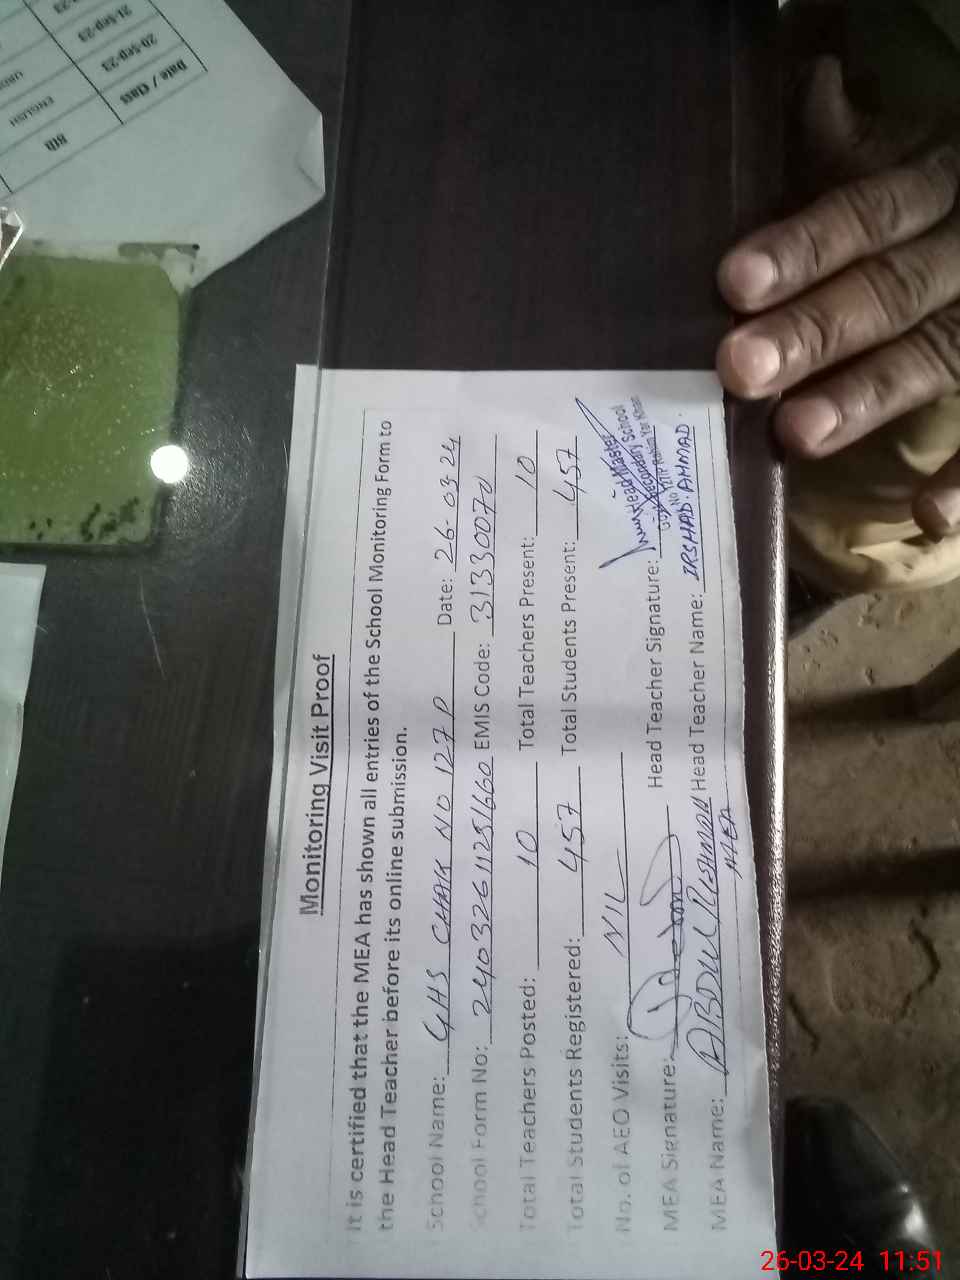 Monitoring Visit Proof
It is certified that the MEA has shown all entries of the School Monitoring Form to
the Head Teacher before its online submission.
School Name: GHS CHAK NO 127 P Date: 26-03-24
School Form No: 240326112851660 EMIS Code: 31330070
Total Teachers Posted: 10 Total Teachers Present: 10
Total Students Registered: 457 Total Students Present: 457
No. of AEO Visits: NIL
MEA Signature: Head Teacher Signature:
Head Master
Secondary School
Rahim Yar Khan
MEA Name: ABDUL Head Teacher Name: IRSHAD AHMAD.
Date / Class
8th
20-Sep-23
ENGLISH
21-Sep-23
26-03-24 11:51